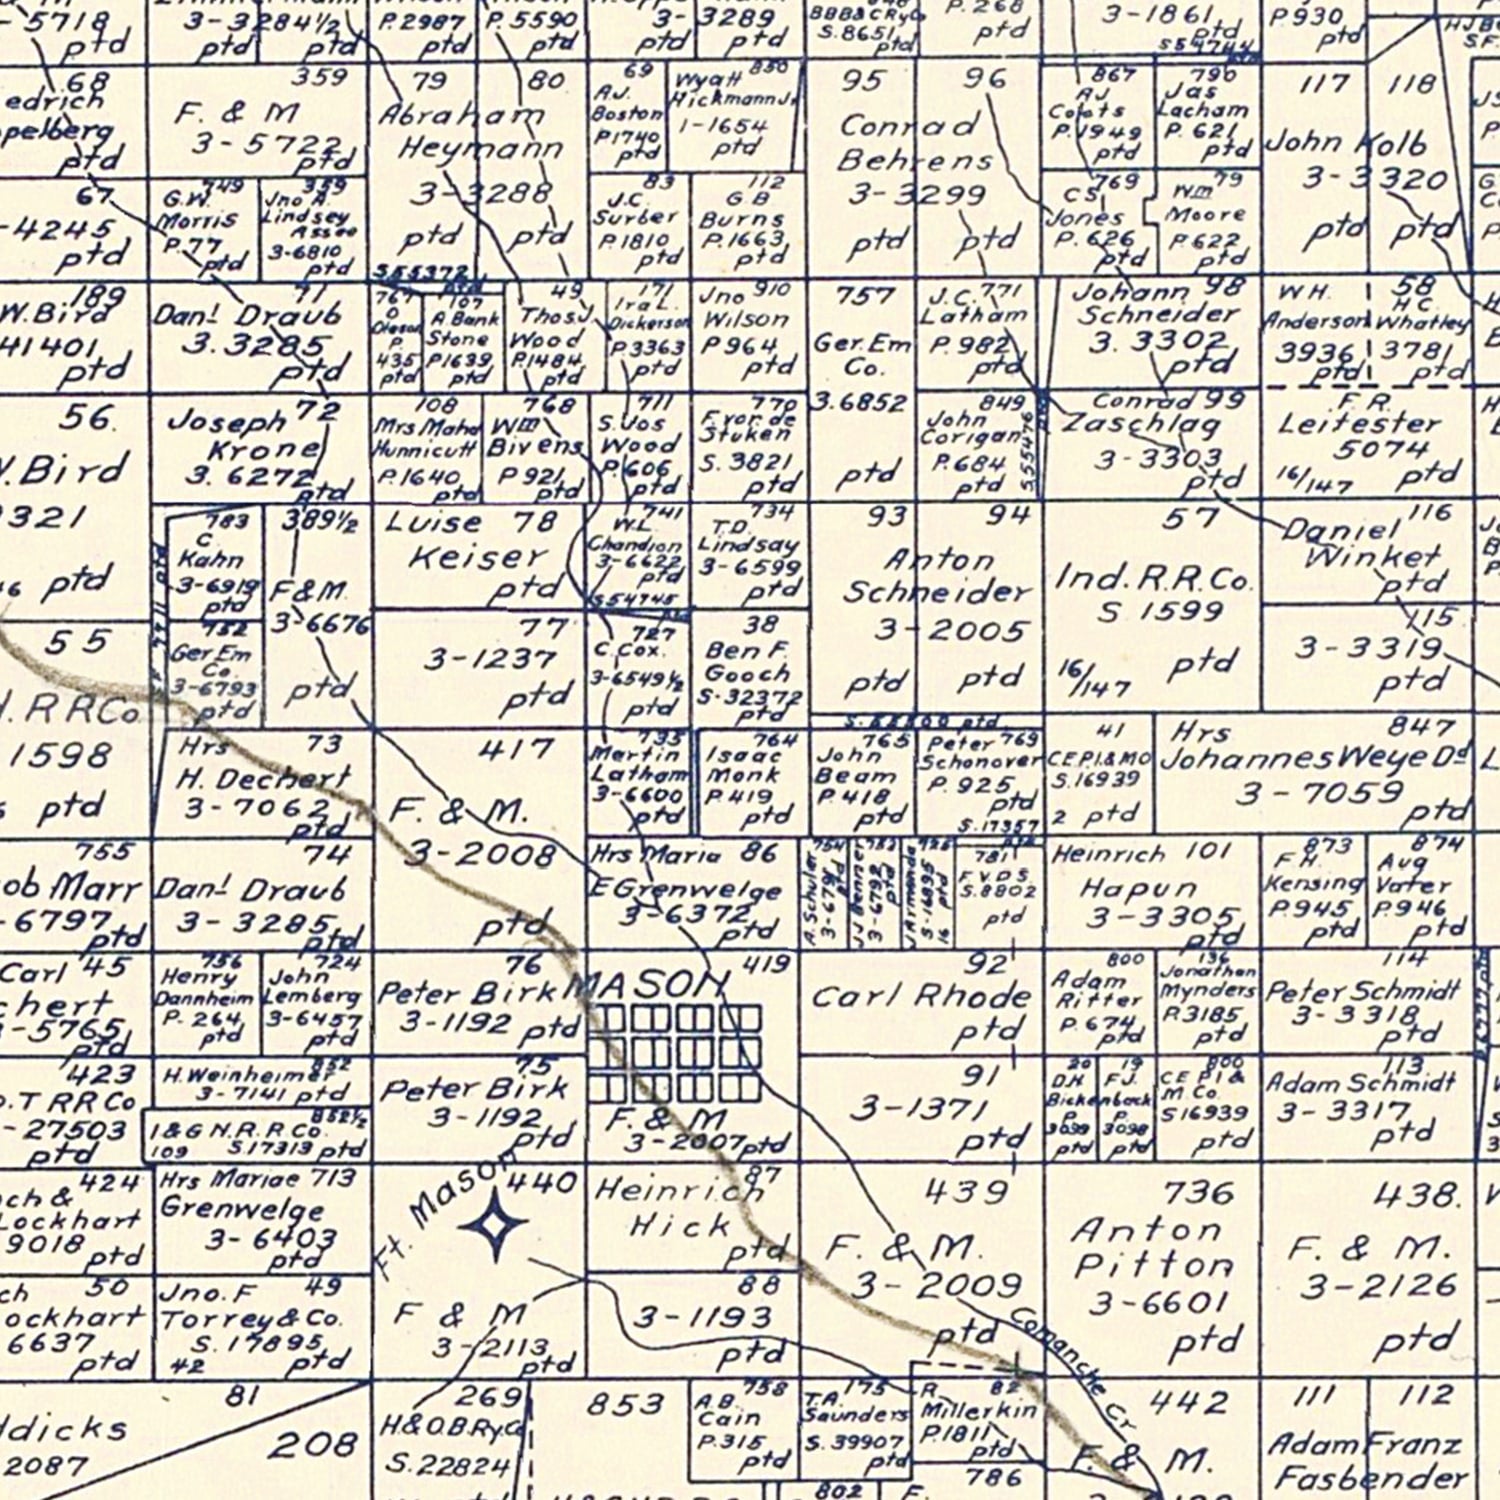 5718
ptd
3-3284½
ptd
ptd
P.2987
ptd
P.5590
ptd
3-
ptd
3289
ptd
BBB&CRyCo
S.8651
ptd
P.268
ptd
3-1861
ptd
P.930
ptd
68
edrich
pelberg
ptd
359
F. & M
3-5722
ptd
79
80
Abraham
Heymann
3-3288
ptd
ptd
69
A.J.
Boston
P1740
ptd
Wyatt 850
Hickmann Jr
1-1654
ptd
95
96
Conrad
Behrens
3-3299
ptd
ptd
867
AJ
P.1949
ptd
790
Jas
Lacham
P. 621
ptd
117
118
John Kolb
3-3320
ptd
ptd
67
-4245
ptd
749
G.W.
Morris
P.77
ptd
359
Jno A.
Lindsey
Assee
3-6810
ptd
S55372
ptd
83
J.C.
Surber
P.1810
ptd
112
G B
Burns
P.1663
ptd
769
C S
Jones
P. 626
ptd
79
Wm
Moore
P.622
ptd
189
W.Bird
41401
ptd
71
Danl Draub
3.3285
ptd
767
O
P.
435
ptd
107
A Bank
Stone
P1639
ptd
49
Thos J.
Wood
P.1484
ptd
171
Ira L.
Dickerson
P.3363
ptd
Jno 910
Wilson
P964
ptd
757
Ger.Em
Co.
3.6852
ptd
J.C. 771
Latham
P.982
ptd
Johann 98
Schneider
3. 3302
ptd
W H.
Anderson
3936
ptd
58
H C
Whatley
3781
ptd
56.
W. Bird
321
ptd
Joseph 72
Krone
3. 6272
ptd
108
Mrs Maha
Hunnicutt
P.1640
ptd
768
Wm
Bivens
P 921
ptd
711
S. Jos
Wood
P.606
ptd
770
F.von de
Stuken
S. 3821
ptd
849
John
Corigan
P.684
ptd
S55476
ptd
Conrad 99
Zaschlag
3-3303
ptd
F R.
Leitester
5074
16/147
ptd
783
C
Kahn
3-6919
ptd
389½
F&M.
3-6676
ptd
Luise 78
Keiser
ptd
741
W.L.
Chandion
3-6622
ptd
S54745
ptd
734
T.D.
Lindsay
3-6599
ptd
93
94
Anton
Schneider
3-2005
ptd
ptd
57
Ind. R.R. Co.
S 1599
16/147
ptd
Daniel 116
Winket
ptd
55
R R Co
1598
ptd
752
Ger Em
Co
3-6793
ptd
77
3-1237
ptd
727
C. Cox.
3-6549½
ptd
38
Ben F.
Gooch
S-32372
ptd
115
3-3319
ptd
Hrs 73
H. Dechert
3-7062
ptd
417
F. & M.
3-2008
ptd
735
Martin
Latham
3-6600
ptd
764
Isaac
Monk
P.419
ptd
765
John
Beam
P.418
ptd
Peter 769
Schonover
P. 925
ptd
S.17357
ptd
41
C E P I & M O
S.16939
2 ptd
Hrs 847
Johannes Weye Dd
3-7059
ptd
755
ob Marr
-6797
ptd
74
Danl Draub
3-3285
ptd
Hrs Maria 86
E Grenwelge
3-6372
ptd
754
A. Schuler
3-6791
ptd
J J Benner
3-6792
ptd
S-16895
16 ptd
781
F.V.D.S.
S.8802
ptd
Heinrich 101
Hapun
3-3305
ptd
873
F.H.
Kensing
P.945
ptd
874
Aug
Vater
P.946
ptd
Carl 45
chert
-5765
ptd
756
Henry
Dannheim
P. 264
ptd
724
John
Lemberg
3-6457
ptd
76
Peter Birk
3-1192
ptd
419
MASON
92
Carl Rhode
ptd
800
Adam
Ritter
P.674
ptd
136
Jonathan
Mynders
P.3185
ptd
114
Peter Schmidt
3-3318
ptd
423
T RR Co
-27503
ptd
852
H.Weinheimer
3-7141 ptd
852½
I & G N.R.R.Co.
109 S.17313 ptd
75
Peter Birk
3-1192
ptd
F. & M
3-2007 ptd
91
3-1371
ptd
20
D.H.
Bickenback
P
3099
ptd
19
F J.
P
3098
ptd
800
C E P I &
M. Co.
S16939
ptd
113
Adam Schmidt
3-3317
ptd
424
ch &
Lockhart
9018
ptd
Hrs Mariae 713
Grenwelge
3-6403
ptd
Ft. Mason
440
F & M
3-2113
ptd
87
Heinrich
Hick
ptd
439
F. & M.
3-2009
ptd
736
Anton
Pitton
3-6601
ptd
438.
F. & M.
3-2126
ptd
ch 50
ockhart
6637
ptd
Jno. F 49
Torrey & Co.
S. 17895
42 ptd
88
3-1193
ptd
Comanche Cr
81
ddicks
2087
208
269
H&O.B.Ry.Co
S.22824
853
758
A.B.
Cain
P.315
ptd
175
T.A.
Saunders
S. 39907
ptd
R. 82
Millerkin
P.1811
ptd
786
442
F. & M.
111
112
Adam Franz
Fasbender
802
F.